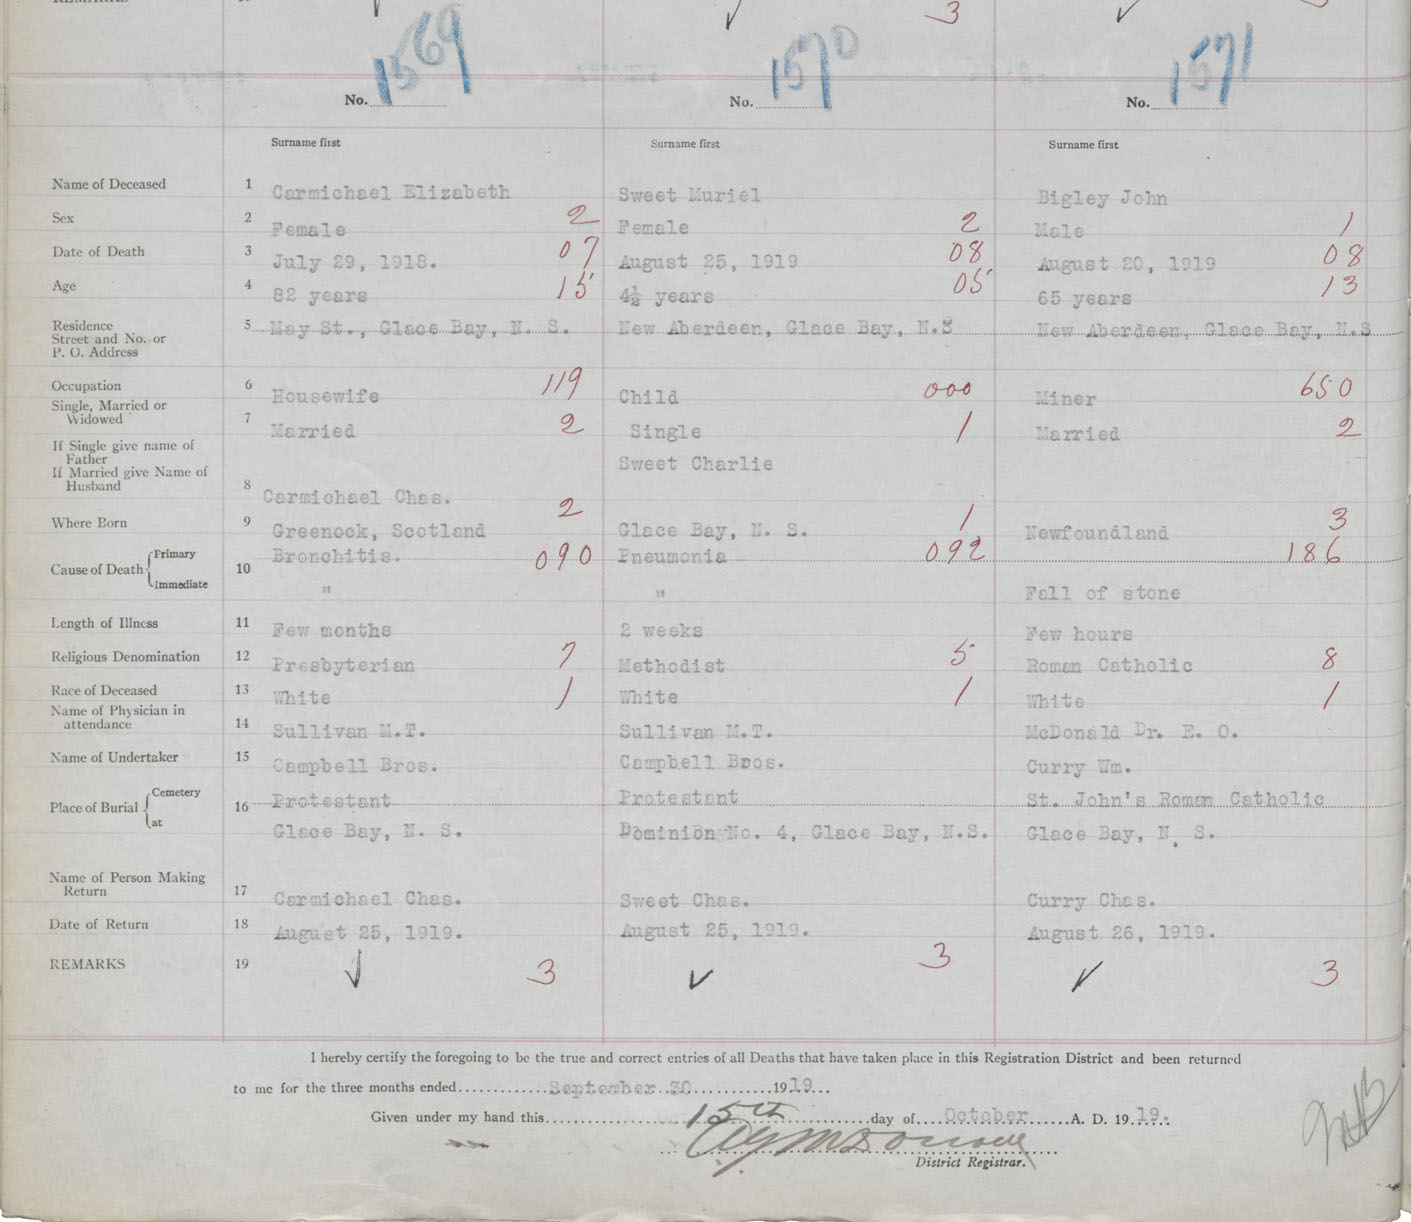 REMARKS 3
1569 1570 1571
No. No. No.
Surname first Surname first Surname first
Name of Deceased 1 Carmichael Elizabeth Sweet Muriel Bigley John
Sex 2 Female 2 Female 2 Male 1
Date of Death 3 July 29, 1918. 07 August 25, 1919 08 August 20, 1919 08
Age 4 82 years 15 4½ years 05 65 years 13
Residence
Street and No. or
P. O. Address
5 May St., Glace Bay, N. S. New Aberdeen, Glace Bay, N.S New Aberdeen, Glace Bay, N.S
Occupation 6 Housewife 119 Child 000 Miner 650
Single, Married or
Widowed 7 Married 2 Single 1 Married 2
If Single give name of
Father Sweet Charlie
If Married give Name of
Husband 8 Carmichael Chas.
Where Born 9 Greenock, Scotland 2 Glace Bay, N. S. 1 Newfoundland 3
Cause of Death 10 Primary Bronchitis. 090 Pneumonia 092 186
Immediate " " Fall of stone
Length of Illness 11 Few months 2 weeks Few hours
Religious Denomination 12 Presbyterian 7 Methodist 5 Roman Catholic 8
Race of Deceased 13 White 1 White 1 White 1
Name of Physician in
attendance 14 Sullivan M.T. Sullivan M.T. McDonald Dr. E. O.
Name of Undertaker 15 Campbell Bros. Campbell Bros. Curry Wm.
Place of Burial 16 Cemetery Protestant Protestant St. John's Roman Catholic
at Glace Bay, N. S. Dominion No. 4, Glace Bay, N.S. Glace Bay, N. S.
Name of Person Making
Return 17 Carmichael Chas. Sweet Chas. Curry Chas.
Date of Return 18 August 25, 1919. August 25, 1919. August 26, 1919.
REMARKS 19 3 3 3
I hereby certify the foregoing to be the true and correct entries of all Deaths that have taken place in this Registration District and been returned
to me for the three months ended September 30 1919
Given under my hand this 15th day of October A. D. 1919.
District Registrar.